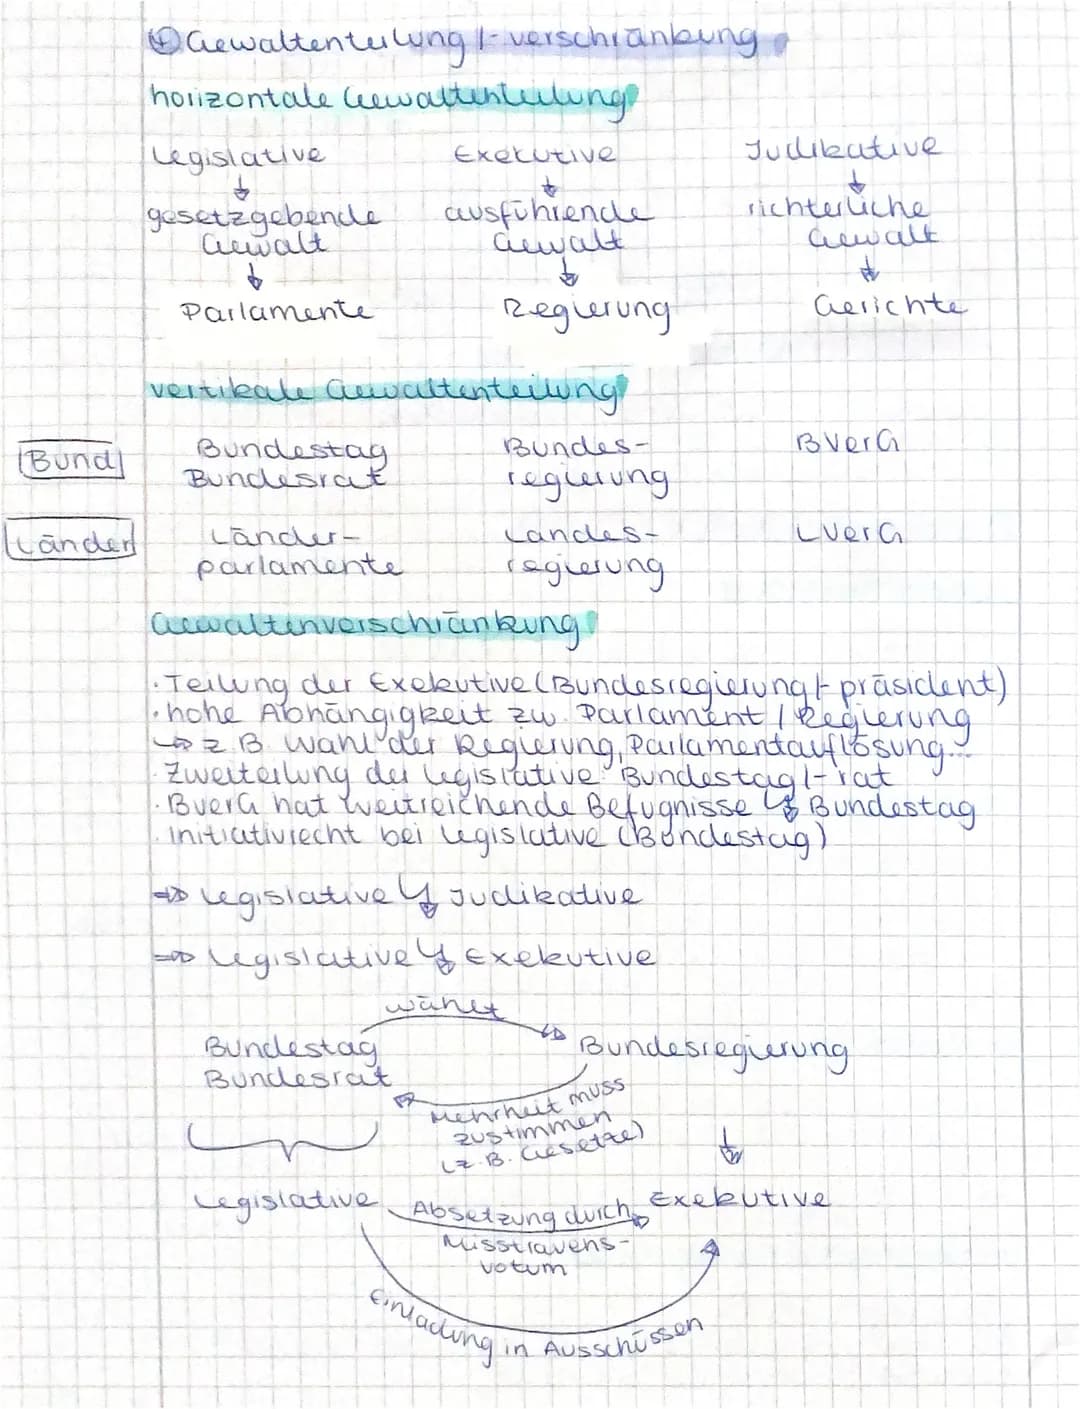 ④ Gewaltenteilung /-verschränkung
horizontale Gewaltenteilung
Legislative Exekutive Judikative
↓ ↓ ↓
gesetzgebende ausführende richterliche
Gewalt Gewalt Gewalt
↓ ↓ ↓
Parlamente Regierung Gerichte
vertikale Gewaltenteilung
Bund Bundestag Bundes- BVerG
Bundesrat regierung
Länder Länder- Landes- LVerG
parlamente regierung
Gewaltenverschränkung
· Teilung der Exekutive (Bundesregierung /-präsident)
· hohe Abhängigkeit zw. Parlament / Regierung
↳ z.B. Wahl der Regierung, Parlamentauflösung...
· Zweiteilung der Legislative: Bundestag /-rat
· BVerG hat weitreichende Befugnisse ↯ Bundestag
· Initiativrecht bei Legislative (Bundestag)
⇒ Legislative ↯ Judikative
⇒ Legislative ↯ Exekutive
wählt
Bundestag Bundesregierung
Bundesrat
Mehrheit muss
zustimmen
(z.B. Gesetze)
↓
Legislative Absetzung durch Exekutive
Misstrauens-
votum
Einladung in Ausschüssen